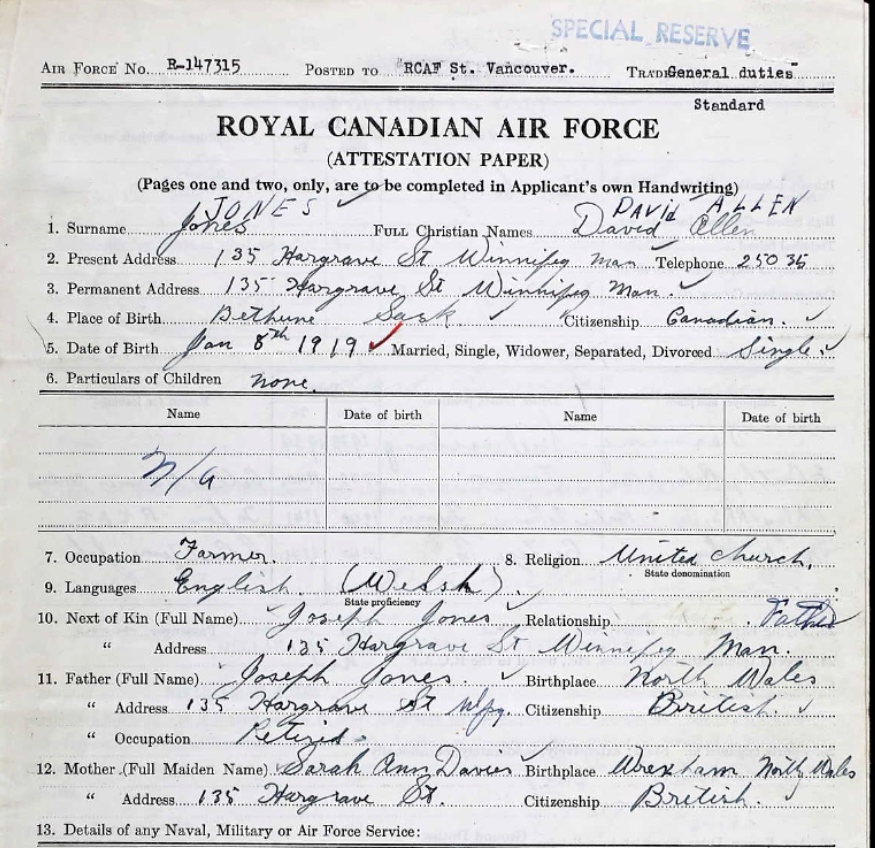 SPECIAL RESERVE
AIR FORCE No. R-147315 POSTED TO "RCAF St. Vancouver. TRADE General duties"
Standard
ROYAL CANADIAN AIR FORCE
(ATTESTATION PAPER)
(Pages one and two, only, are to be completed in Applicant's own Handwriting)
JONES DAVID ALLEN
1. Surname Jones FULL Christian Names David Allen
2. Present Address 135 Hargrave St Winnipeg Man Telephone 25036
3. Permanent Address 135 Hargrave St Winnipeg Man.
4. Place of Birth Bethune Sask Citizenship Canadian.
5. Date of Birth Jan 8th 1919 Married, Single, Widower, Separated, Divorced Single.
6. Particulars of Children none.
Name Date of birth Name Date of birth
N/a
7. Occupation Farmer. 8. Religion United Church.
State denomination
9. Languages English. (Welsh).
State proficiency
10. Next of Kin (Full Name) Joseph Jones Relationship Father
" Address 135 Hargrave St Winnipeg Man.
11. Father (Full Name) Joseph Jones. Birthplace North Wales
" Address 135 Hargrave St Wpg. Citizenship British.
" Occupation Retired.
12. Mother (Full Maiden Name) Sarah Ann Davies Birthplace Wrexham North Wales
" Address 135 Hargrave St. Citizenship British.
13. Details of any Naval, Military or Air Force Service: